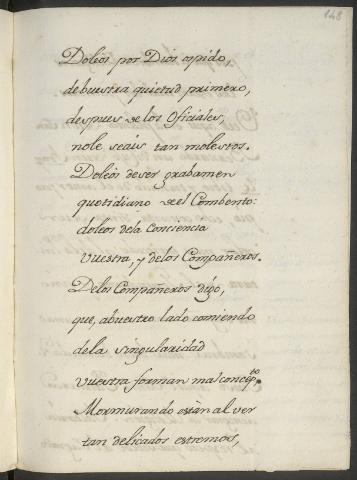 148
Doleos por Dios os pido,
de buestra quietud primero,
despues de los Oficiales,
no le seais tan molestos.
Doleos de ser grabamen
quotidiano de el Combento:
doleos de la Conciencia
vuestra, y de los Compañeros.
De los Compañeros digo,
que, abuestro lado comiendo
de la singularidad
vuestra forman mal concepto.
Mormurando están al ver
tan delicados estremos,